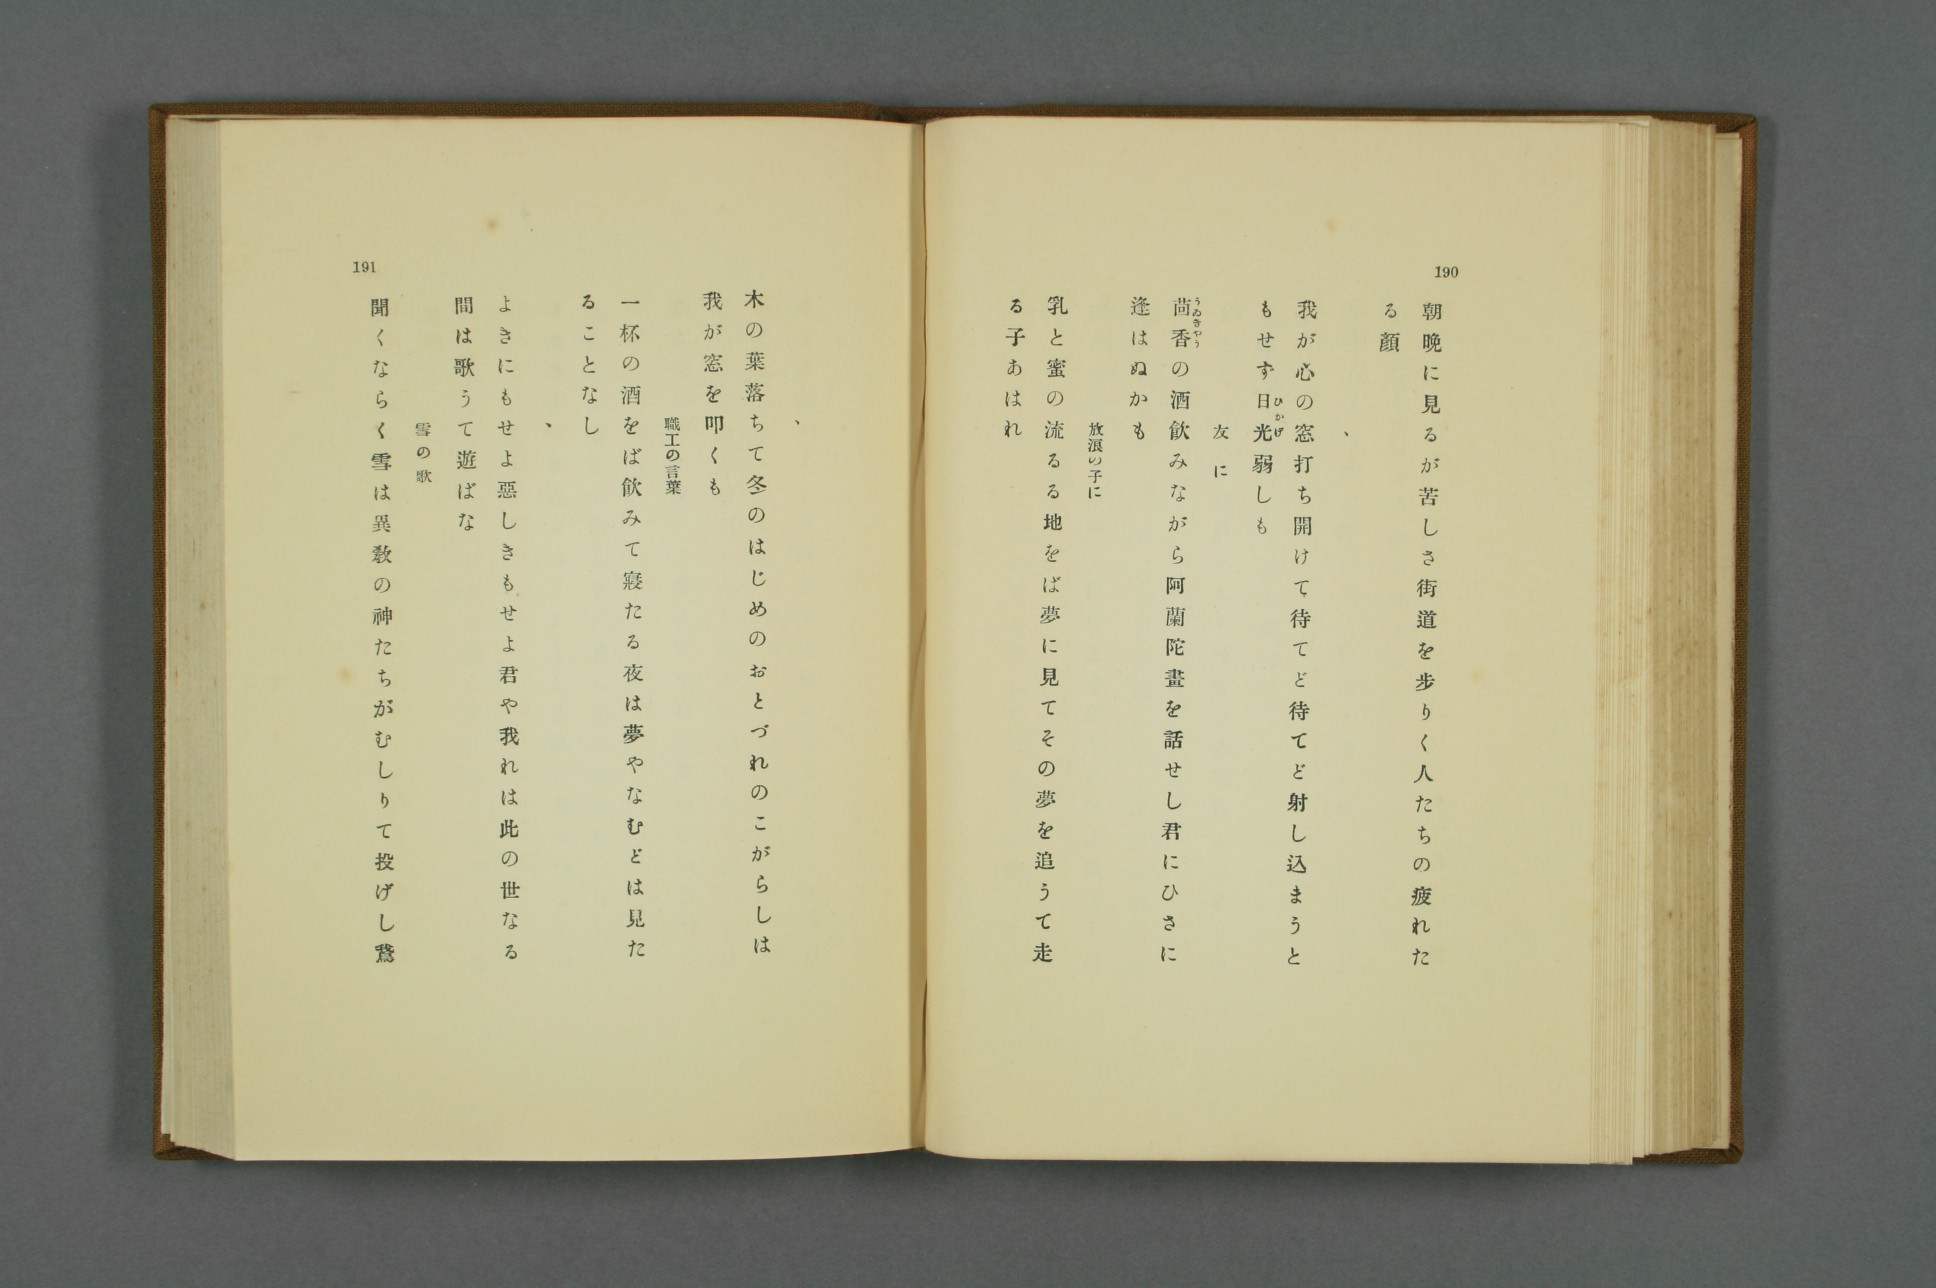 190
朝晩に見るが苦しさ街道を歩りく人たちの疲れた
る顔
、
我が心の窓打ち開けて待てど待てど射し込まうと
もせず日光弱しも
ひかげ
友に
茴香の酒飮みながら阿蘭陀畫を話せし君にひさに
うゐきやう
逢はぬかも
放浪の子に
乳と蜜の流るる地をば夢に見てその夢を追うて走
る子あはれ
191
、
木の葉落ちて冬のはじめのおとづれのこがらしは
我が窓を叩くも
職工の言葉
一杯の酒をば飮みて寢たる夜は夢やなむどは見た
ることなし
、
よきにもせよ惡しきもせよ君や我れは此の世なる
間は歌うて遊ばな
雪の歌
聞くならく雪は異教の神たちがむしりて投げし鵞